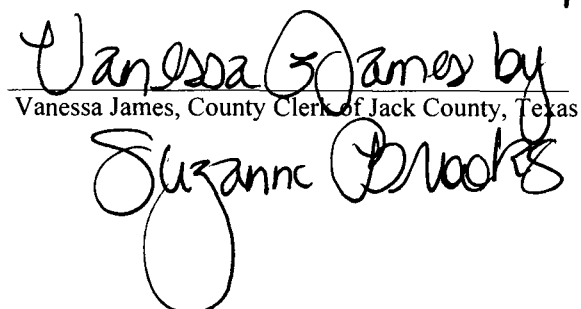 Vanessa James by
Vanessa James, County Clerk of Jack County, Texas
Suzanne Brooks